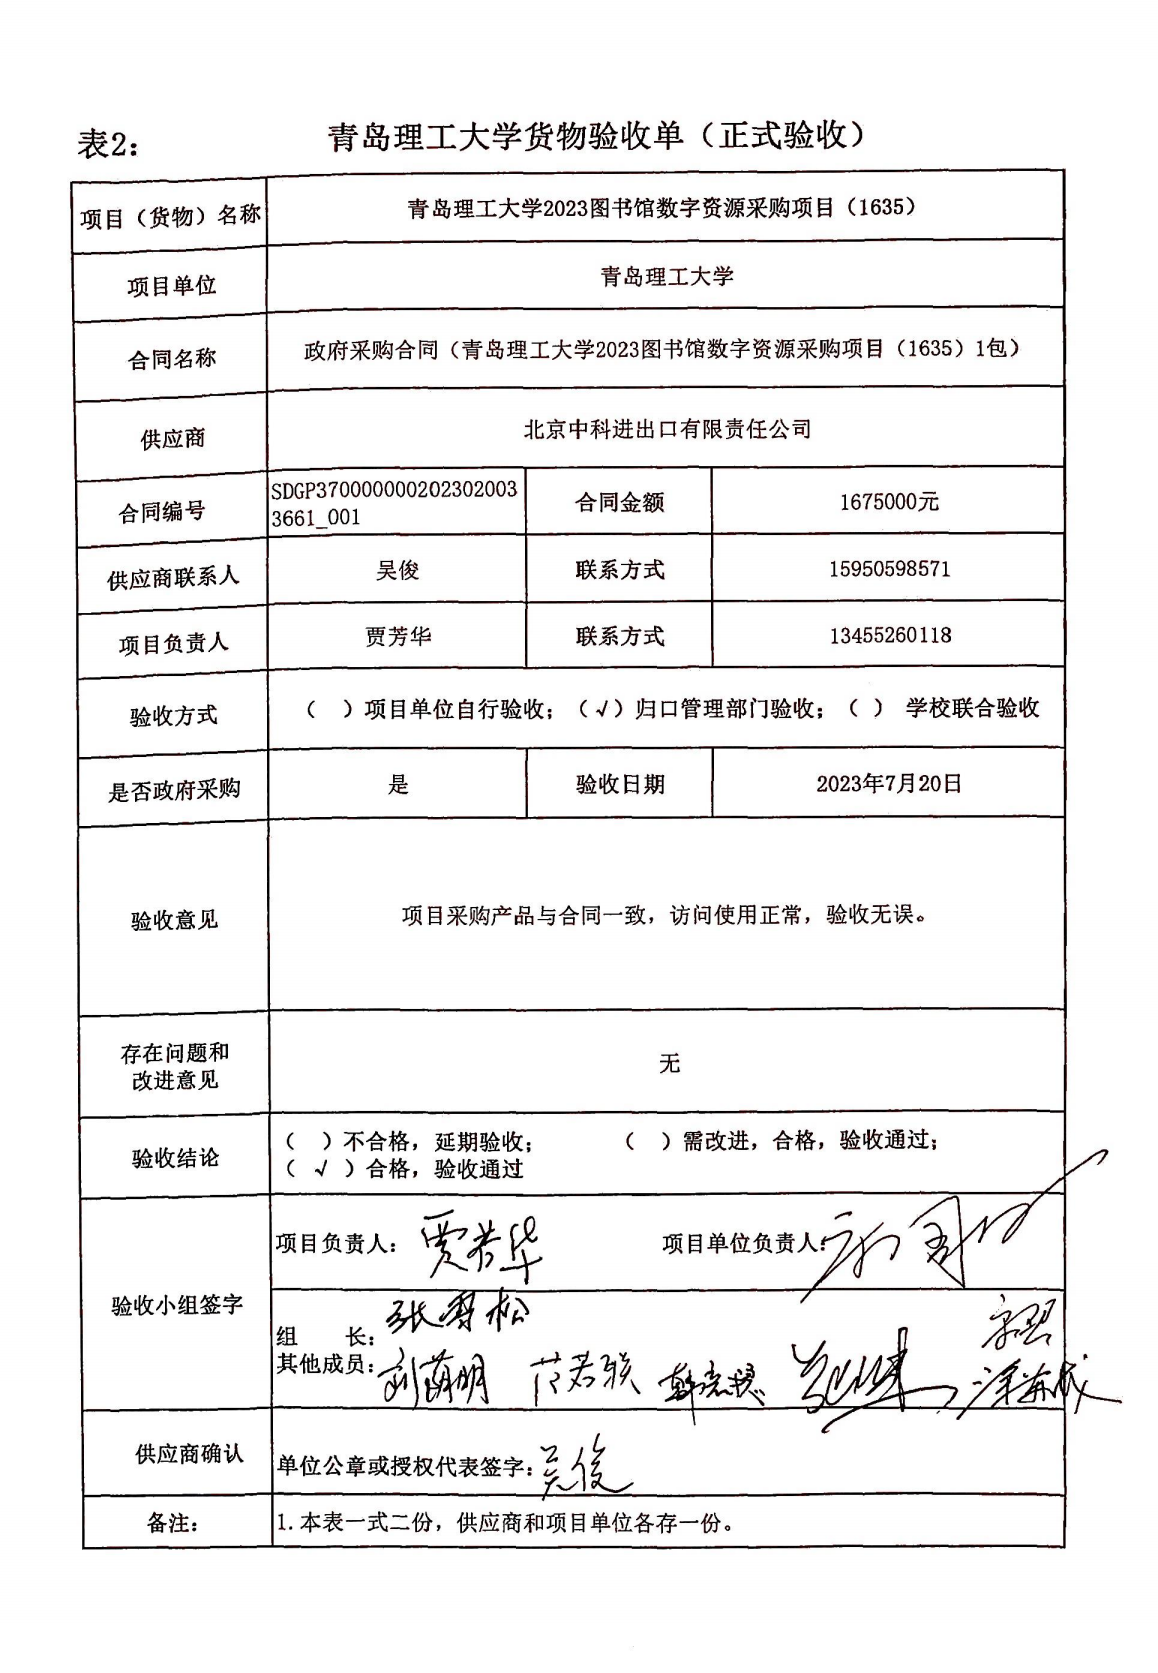 表2：
青岛理工大学货物验收单（正式验收）
项目（货物）名称 青岛理工大学2023图书馆数字资源采购项目（1635）
项目单位 青岛理工大学
合同名称 政府采购合同（青岛理工大学2023图书馆数字资源采购项目（1635）1包）
供应商 北京中科进出口有限责任公司
合同编号 SDGP370000000202302003
3661_001 合同金额 1675000元
供应商联系人 吴俊 联系方式 15950598571
项目负责人 贾芳华 联系方式 13455260118
验收方式 （ ）项目单位自行验收；（√）归口管理部门验收；（ ） 学校联合验收
是否政府采购 是 验收日期 2023年7月20日
验收意见 项目采购产品与合同一致，访问使用正常，验收无误。
存在问题和
改进意见 无
验收结论 （ ）不合格，延期验收； （ ）需改进，合格，验收通过；
（ √ ）合格，验收通过
验收小组签字 项目负责人： 贾芳华 项目单位负责人：
组 长：
其他成员：
供应商确认 单位公章或授权代表签字：吴俊
备注： 1.本表一式二份，供应商和项目单位各存一份。